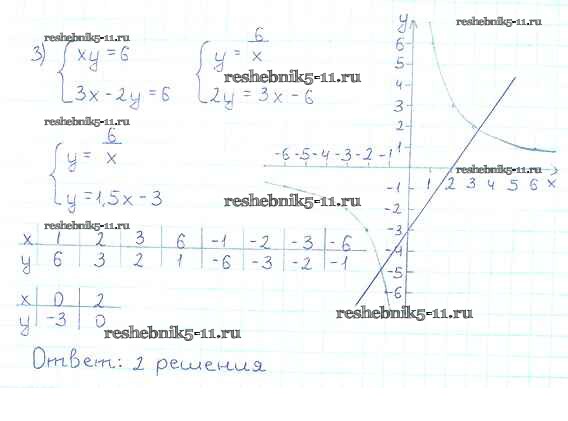 reshebnik5-11.ru
3) { xy = 6
3x - 2y = 6
{ y = 6/x
2y = 3x - 6
reshebnik5-11.ru
reshebnik5-11.ru
{ y = 6/x
y = 1,5x - 3
reshebnik5-11.ru
reshebnik5-11.ru
x | 1 | 2 | 3 | 6 | -1 | -2 | -3 | -6
y | 6 | 3 | 2 | 1 | -6 | -3 | -2 | -1
x | 0 | 2
y | -3 | 0
reshebnik5-11.ru
Ответ: 2 решения
y
reshebnik5-11.ru
6
5
4
3
2
1
-6 -5 -4 -3 -2 -1
reshebnik5-11.ru
1 2 3 4 5 6 x
-1
-2
-3
-4
-5
-6
reshebnik5-11.ru